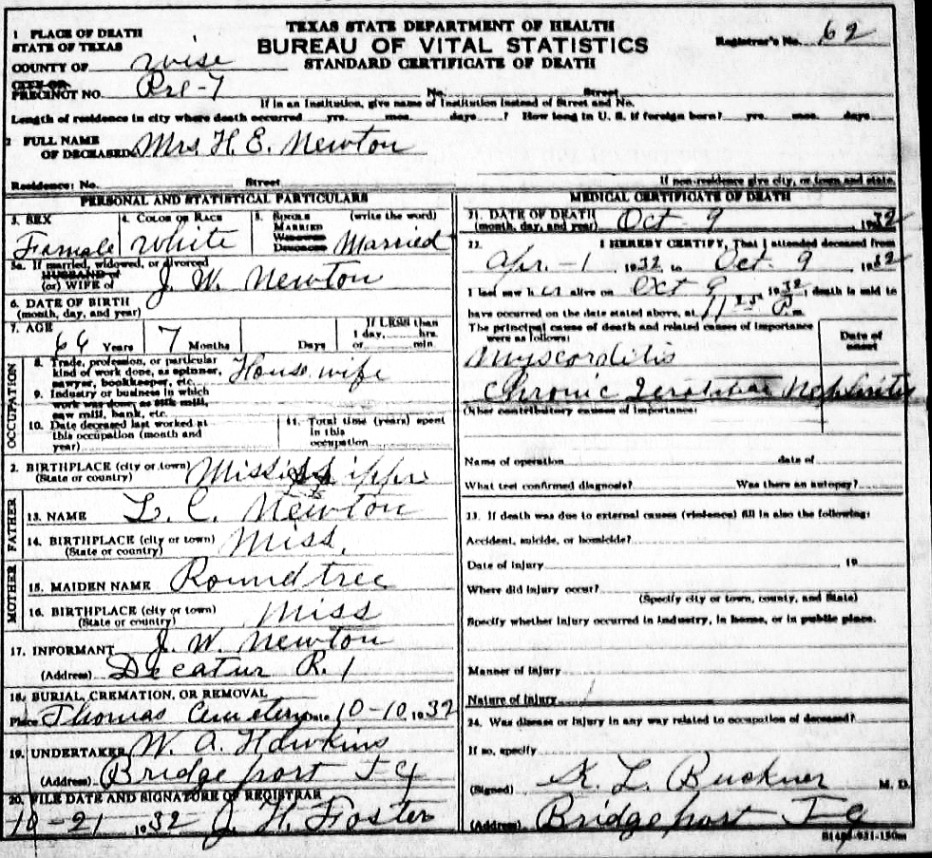 TEXAS STATE DEPARTMENT OF HEALTH
BUREAU OF VITAL STATISTICS
STANDARD CERTIFICATE OF DEATH
Registrar's No. 62
1 PLACE OF DEATH
STATE OF TEXAS
COUNTY OF Wise
CITY OR
PRECINCT NO. Pre-7 No. Street
If in an Institution, give name of Institution instead of Street and No.
Length of residence in city where death occurred yrs. mos. days ? How long in U. S. if foreign born? yrs. mos. days
2 FULL NAME
OF DECEASED Mrs H. E. Newton
Residence: No. Street If non-residence give city, or town and state.
PERSONAL AND STATISTICAL PARTICULARS
3. SEX Famale
4. COLOR OR RACE White
5. SINGLE (write the word)
MARRIED
WIDOWED
DIVORCED Married
5a. If married, widowed, or divorced
HUSBAND of
(or) WIFE of J. W. Newton
6. DATE OF BIRTH
(month, day, and year)
7. AGE 66 Years 7 Months Days If LESS than
1 day, hrs.
or min.
OCCUPATION
8. Trade, profession, or particular
kind of work done, as spinner,
sawyer, bookkeeper, etc. House wife
9. Industry or business in which
work was done, as silk mill,
saw mill, bank, etc.
10. Date deceased last worked at
this occupation (month and
year)
11. Total time (years) spent
in this
occupation
2. BIRTHPLACE (city or town)
(State or country) Mississippi
FATHER
13. NAME L. C. Newton
14. BIRTHPLACE (city or town)
(State or country) Miss.
MOTHER
15. MAIDEN NAME Roundtree
16. BIRTHPLACE (city or town)
(State or country) Miss
17. INFORMANT J. W. Newton
(Address) Decatur R. 1
18. BURIAL, CREMATION, OR REMOVAL
Place Thomas Cemetery Date 10-10 1932
19. UNDERTAKER W. A. Hawkins
(Address) Bridgeport
20. FILE DATE AND SIGNATURE OF REGISTRAR
10-21 1932 J. H. Foster
MEDICAL CERTIFICATE OF DEATH
21. DATE OF DEATH
(month, day, and year) Oct 9 1932
22. I HEREBY CERTIFY, That I attended deceased from
Apr. -1 1932 to Oct. 9 1932
I last saw her alive on Oct 9 1932; death is said to
have occurred on the date stated above, at 11 25 P. m.
The principal cause of death and related causes of importance
were as follows: Date of
onset
Myscorditis
Chronic Nephritis
Other contributory causes of importance:
Name of operation date of
What test confirmed diagnosis? Was there an autopsy?
23. If death was due to external causes (violence) fill in also the following:
Accident, suicide, or homicide?
Date of injury 19
Where did injury occur?
(Specify city or town, county, and State)
Specify whether injury occurred in industry, in home, or in public place.
Manner of injury
Nature of injury
24. Was disease or injury in any way related to occupation of deceased?
If so, specify
(Signed) K. L. Buckner M. D.
(Address) Bridgeport